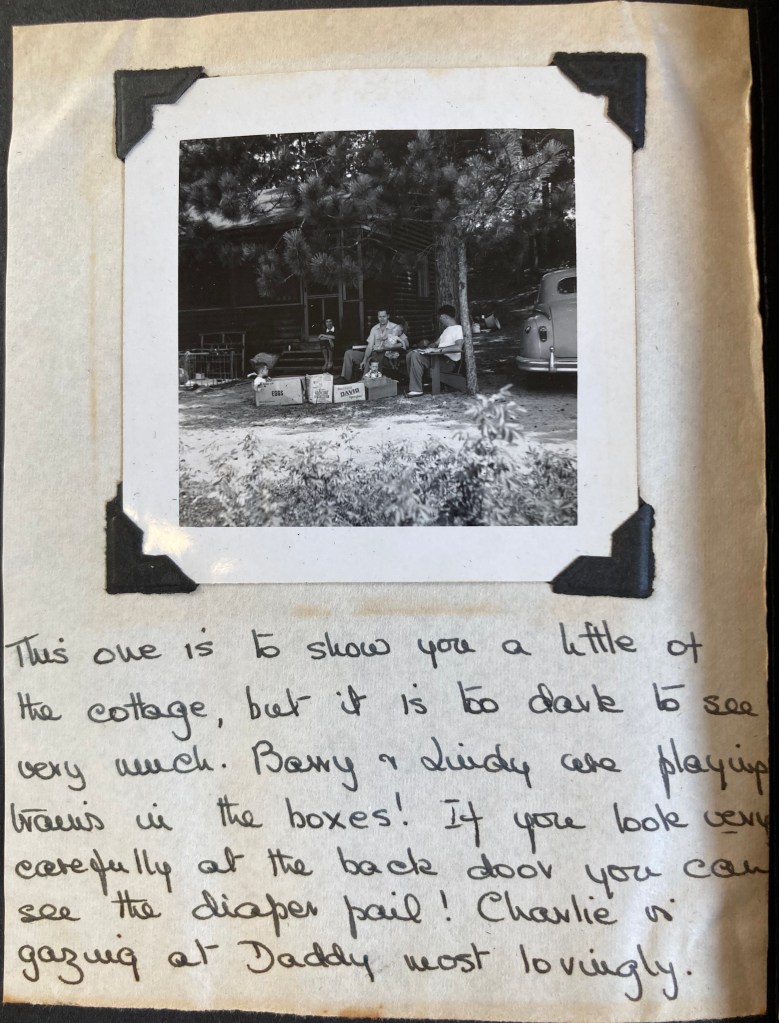 EGGS
DAVID
This one is to show you a little of
the cottage, but it is too dark to see
very much. Barry & Lindy are playing
trains in the boxes! If you look very
carefully at the back door you can
see the diaper pail! Charlie is
gazing at Daddy most lovingly.